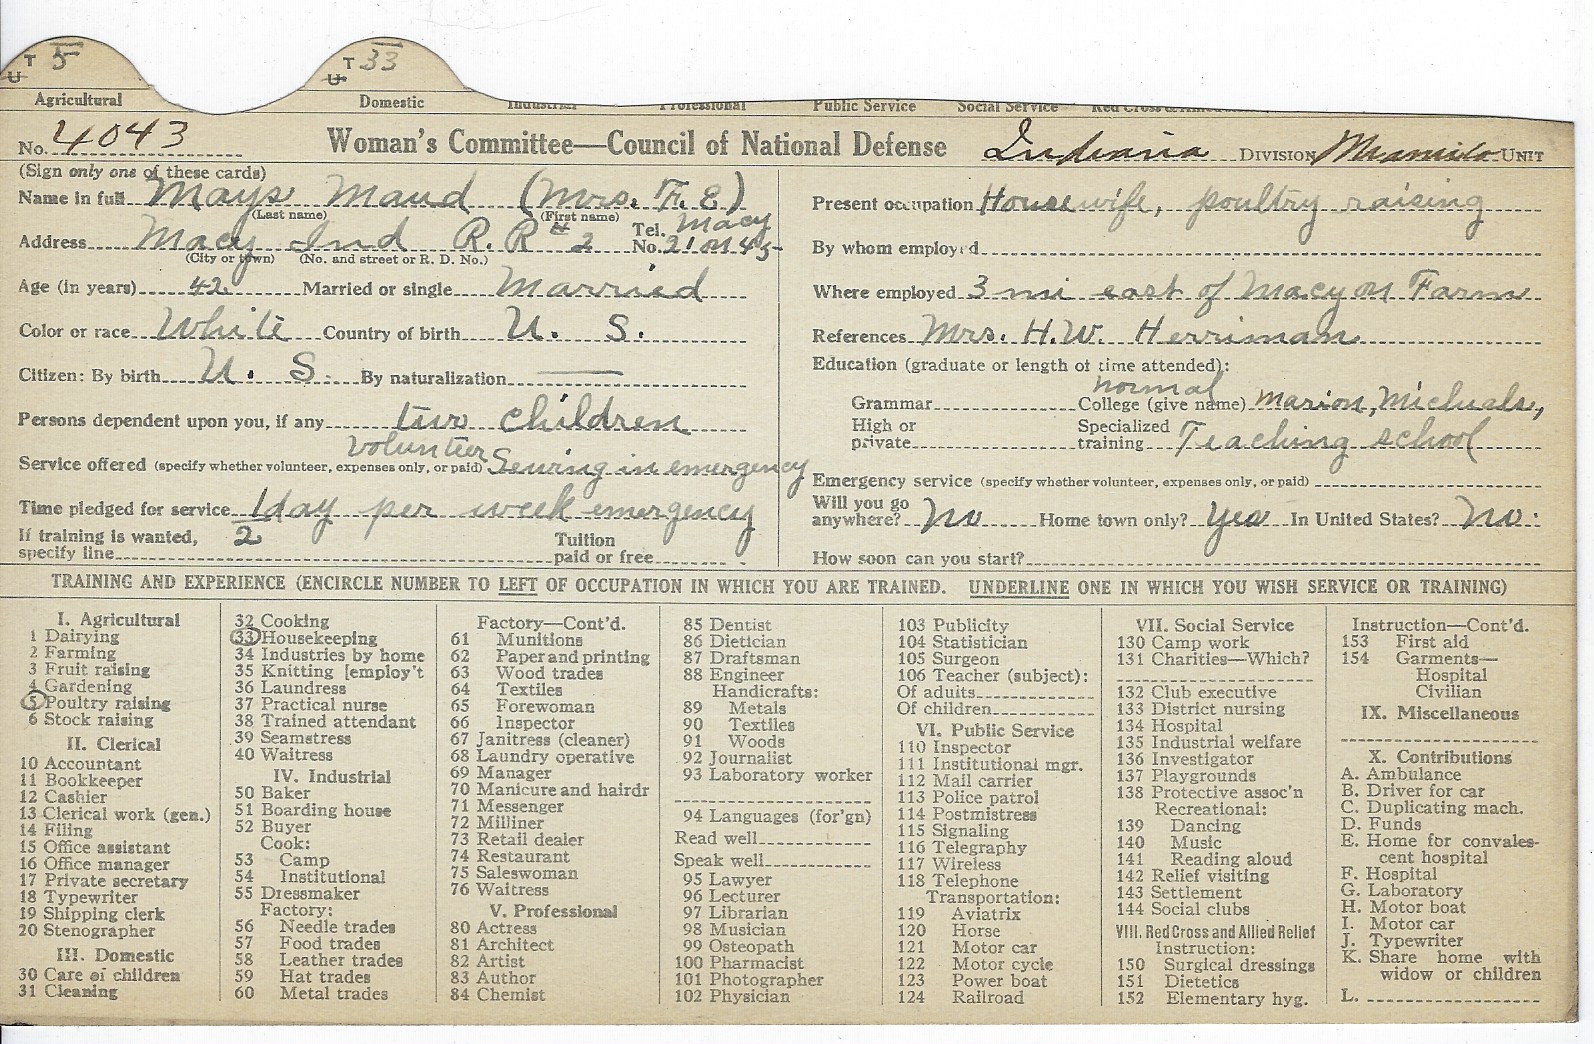 T 5 T 33
U U
Agricultural Domestic Industrial Professional Public Service Social Service
No. 4043 Woman's Committee—Council of National Defense Indiana DIVISION UNIT
(Sign only one of these cards)
Name in full Mays Maud (Mrs. F. E)
(Last name) (First name)
Address Macy Ind R. R # 2 Tel. No. Macy 21 on 45
(City or town) (No. and street or R. D. No.)
Age (in years) 42 Married or single Married
Color or race White Country of birth U. S.
Citizen: By birth U. S. By naturalization —
Persons dependent upon you, if any two children
volunteer
Service offered (specify whether volunteer, expenses only, or paid) Sewing in emergency
Time pledged for service 1/2 day per week emergency
If training is wanted, specify line Tuition paid or free
Present occupation Housewife, poultry raising
By whom employed
Where employed 3 mi east of Macy on Farm
References Mrs. H. W. Herriman
Education (graduate or length of time attended):
normal
Grammar College (give name) Marion, Michuals,
High or private Specialized training Teaching school
Emergency service (specify whether volunteer, expenses only, or paid)
Will you go anywhere? No Home town only? Yes In United States? No.
How soon can you start?
TRAINING AND EXPERIENCE (ENCIRCLE NUMBER TO LEFT OF OCCUPATION IN WHICH YOU ARE TRAINED. UNDERLINE ONE IN WHICH YOU WISH SERVICE OR TRAINING)
I. Agricultural
1 Dairying
2 Farming
3 Fruit raising
4 Gardening
5 Poultry raising
6 Stock raising
II. Clerical
10 Accountant
11 Bookkeeper
12 Cashier
13 Clerical work (gen.)
14 Filing
15 Office assistant
16 Office manager
17 Private secretary
18 Typewriter
19 Shipping clerk
20 Stenographer
III. Domestic
30 Care of children
31 Cleaning
32 Cooking
33 Housekeeping
34 Industries by home
35 Knitting [employ't
36 Laundress
37 Practical nurse
38 Trained attendant
39 Seamstress
40 Waitress
IV. Industrial
50 Baker
51 Boarding house
52 Buyer
Cook:
53 Camp
54 Institutional
55 Dressmaker
Factory:
56 Needle trades
57 Food trades
58 Leather trades
59 Hat trades
60 Metal trades
Factory—Cont'd.
61 Munitions
62 Paper and printing
63 Wood trades
64 Textiles
65 Forewoman
66 Inspector
67 Janitress (cleaner)
68 Laundry operative
69 Manager
70 Manicure and hairdr
71 Messenger
72 Milliner
73 Retail dealer
74 Restaurant
75 Saleswoman
76 Waitress
V. Professional
80 Actress
81 Architect
82 Artist
83 Author
84 Chemist
85 Dentist
86 Dietician
87 Draftsman
88 Engineer
Handicrafts:
89 Metals
90 Textiles
91 Woods
92 Journalist
93 Laboratory worker
94 Languages (for'gn)
Read well
Speak well
95 Lawyer
96 Lecturer
97 Librarian
98 Musician
99 Osteopath
100 Pharmacist
101 Photographer
102 Physician
103 Publicity
104 Statistician
105 Surgeon
106 Teacher (subject):
Of adults
Of children
VI. Public Service
110 Inspector
111 Institutional mgr.
112 Mail carrier
113 Police patrol
114 Postmistress
115 Signaling
116 Telegraphy
117 Wireless
118 Telephone
Transportation:
119 Aviatrix
120 Horse
121 Motor car
122 Motor cycle
123 Power boat
124 Railroad
VII. Social Service
130 Camp work
131 Charities—Which?
132 Club executive
133 District nursing
134 Hospital
135 Industrial welfare
136 Investigator
137 Playgrounds
138 Protective assoc'n
Recreational:
139 Dancing
140 Music
141 Reading aloud
142 Relief visiting
143 Settlement
144 Social clubs
VIII. Red Cross and Allied Relief
Instruction:
150 Surgical dressings
151 Dietetics
152 Elementary hyg.
Instruction—Cont'd.
153 First aid
154 Garments—
Hospital
Civilian
IX. Miscellaneous
X. Contributions
A. Ambulance
B. Driver for car
C. Duplicating mach.
D. Funds
E. Home for convales-
cent hospital
F. Hospital
G. Laboratory
H. Motor boat
I. Motor car
J. Typewriter
K. Share home with
widow or children
L.